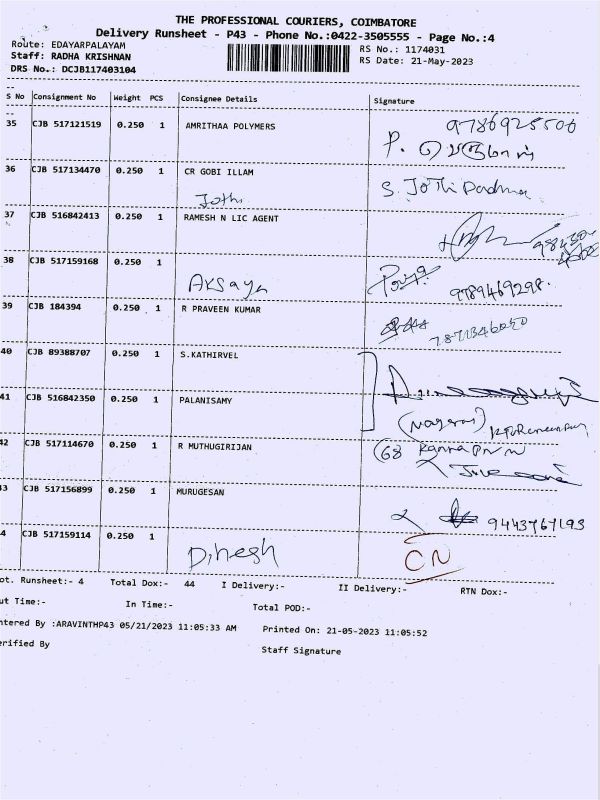 THE PROFESSIONAL COURIERS, COIMBATORE
Delivery Runsheet - P43 - Phone No.:0422-3505555 - Page No.:4
Route: EDAYARPALAYAM RS No.: 1174031
Staff: RADHA KRISHNAN RS Date: 21-May-2023
DRS No.: DCJB117403104
S No Consignment No Weight PCS Consignee Details Signature
9786925500
35 CJB 517121519 0.250 1 AMRITHAA POLYMERS
P. பெருமாள்
36 CJB 517134470 0.250 1 CR GOBI ILLAM
Jothi S. Jothi Padma
37 CJB 516842413 0.250 1 RAMESH N LIC AGENT
38 CJB 517159168 0.250 1
Aksaya 9789469298.
39 CJB 184394 0.250 1 R PRAVEEN KUMAR
7871346050
40 CJB 89388707 0.250 1 S.KATHIRVEL
41 CJB 516842350 0.250 1 PALANISAMY
42 CJB 517114670 0.250 1 R MUTHUGIRIJAN
(68
43 CJB 517156899 0.250 1 MURUGESAN
9443767193
4 CJB 517159114 0.250 1
Dinesh CN
ot. Runsheet:- 4 Total Dox:- 44 I Delivery:- II Delivery:- RTN Dox:-
ut Time:- In Time:- Total POD:-
ntered By :ARAVINTHP43 05/21/2023 11:05:33 AM Printed On: 21-05-2023 11:05:52
erified By Staff Signature